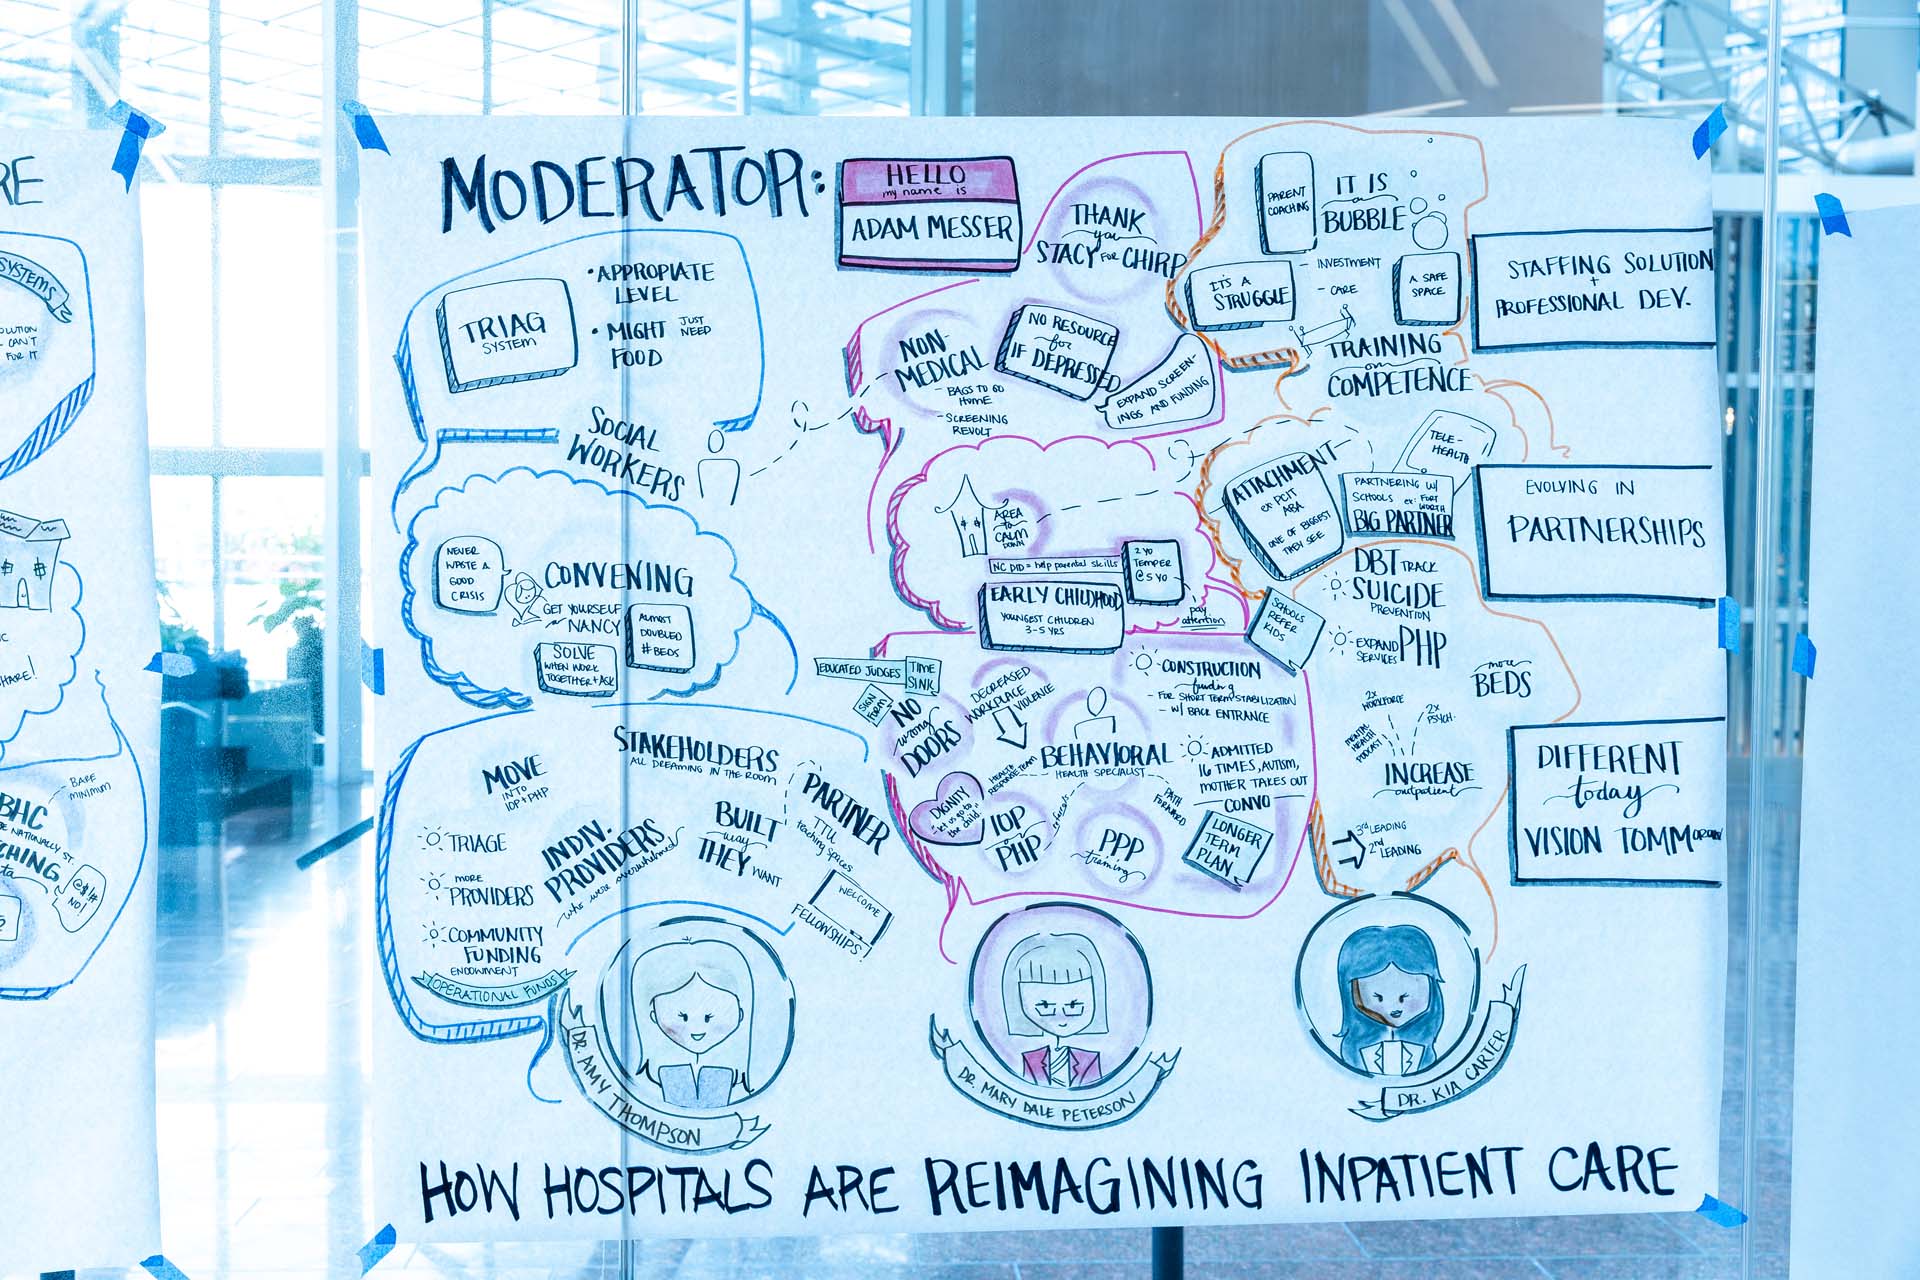 RE
SYSTEMS
OLUTION
CAN'T
FUR IT
HARE!
BARE
MINIMUM
BHC
NATIONALLY ST.
CHING
ta
@$!#
NO!
MODERATOR:
HELLO
my name is
ADAM MESSER
TRIAG
SYSTEM
• APPROPIATE
LEVEL
• MIGHT JUST NEED
FOOD
SOCIAL
WORKERS
NEVER
WASTE A
GOOD
CRISIS
CONVENING
GET YOURSELF
A NANCY
ALMOST
DOUBLED
# BEDS
SOLVE
WHEN WORK
TOGETHER + ASK
STAKEHOLDERS
ALL DREAMING IN THE ROOM
MOVE
INTO
IOP + PHP
TRIAGE
MORE
PROVIDERS
COMMUNITY
FUNDING
ENDOWMENT
OPERATIONAL FUNDS
INDIV.
PROVIDERS
who were overwhelmed
BUILT
way
THEY WANT
PARTNER
TTU
teaching spaces
WELCOME
FELLOWSHIPS!
DR. AMY THOMPSON
THANK
you
STACY FOR CHIRP
NON-
MEDICAL
- BAGS TO GO
HOME
- SCREENING
REVOLT
NO RESOURCE
for
IF DEPRESSED
EXPAND SCREEN-
INGS AND FUNDING
AREA
to
CALM
DOWN
NC DID = help parental skills
2 YO
TEMPER
@ 5 YO
EARLY CHILDHOOD
YOUNGEST CHILDREN
3-5 YRS
pay
attention
EDUCATED JUDGES
TIME
SINK
SIGN
FORM
NO
wrong
DOORS
DECREASED
WORKPLACE
VIOLENCE
CONSTRUCTION
funding
- FOR SHORT TERM STABILIZATION
- W/ BACK ENTRANCE
HEALTH
RESPONSE TEAM
BEHAVIORAL
HEALTH SPECIALIST
ADMITTED
16 TIMES, AUTISM,
MOTHER TAKES OUT
CONVO
DIGNITY
"let us go to
the child"
IOP
PHP
referrals
PPP
training
PATH
FORWARD
LONGER
TERM
PLAN
DR. MARY DALE PETERSON
PARENT
COACHING
IT IS
a
BUBBLE
IT'S A
STRUGGLE
- INVESTMENT
- CARE
A SAFE
SPACE
TRAINING
on
COMPETENCE
ATTACHMENT
ex PCIT
ABA
ONE OF BIGGEST
THEY SEE
TELE-
HEALTH
PARTNERING W/
SCHOOLS ex: FORT
WORTH
BIG PARTNER
SCHOOLS
REFER
KIDS
DBT TRACK
SUICIDE
PREVENTION
EXPAND
SERVICES
PHP
more
BEDS
2x
WORKFORCE
2x
PSYCH.
MENTAL
HEALTH
PODCAST
INCREASE
outpatient
3rd LEADING
2nd LEADING
DR. KIA CARTER
STAFFING SOLUTION
+
PROFESSIONAL DEV.
EVOLVING IN
PARTNERSHIPS
DIFFERENT
today
VISION TOMMOROW
HOW HOSPITALS ARE REIMAGINING INPATIENT CARE